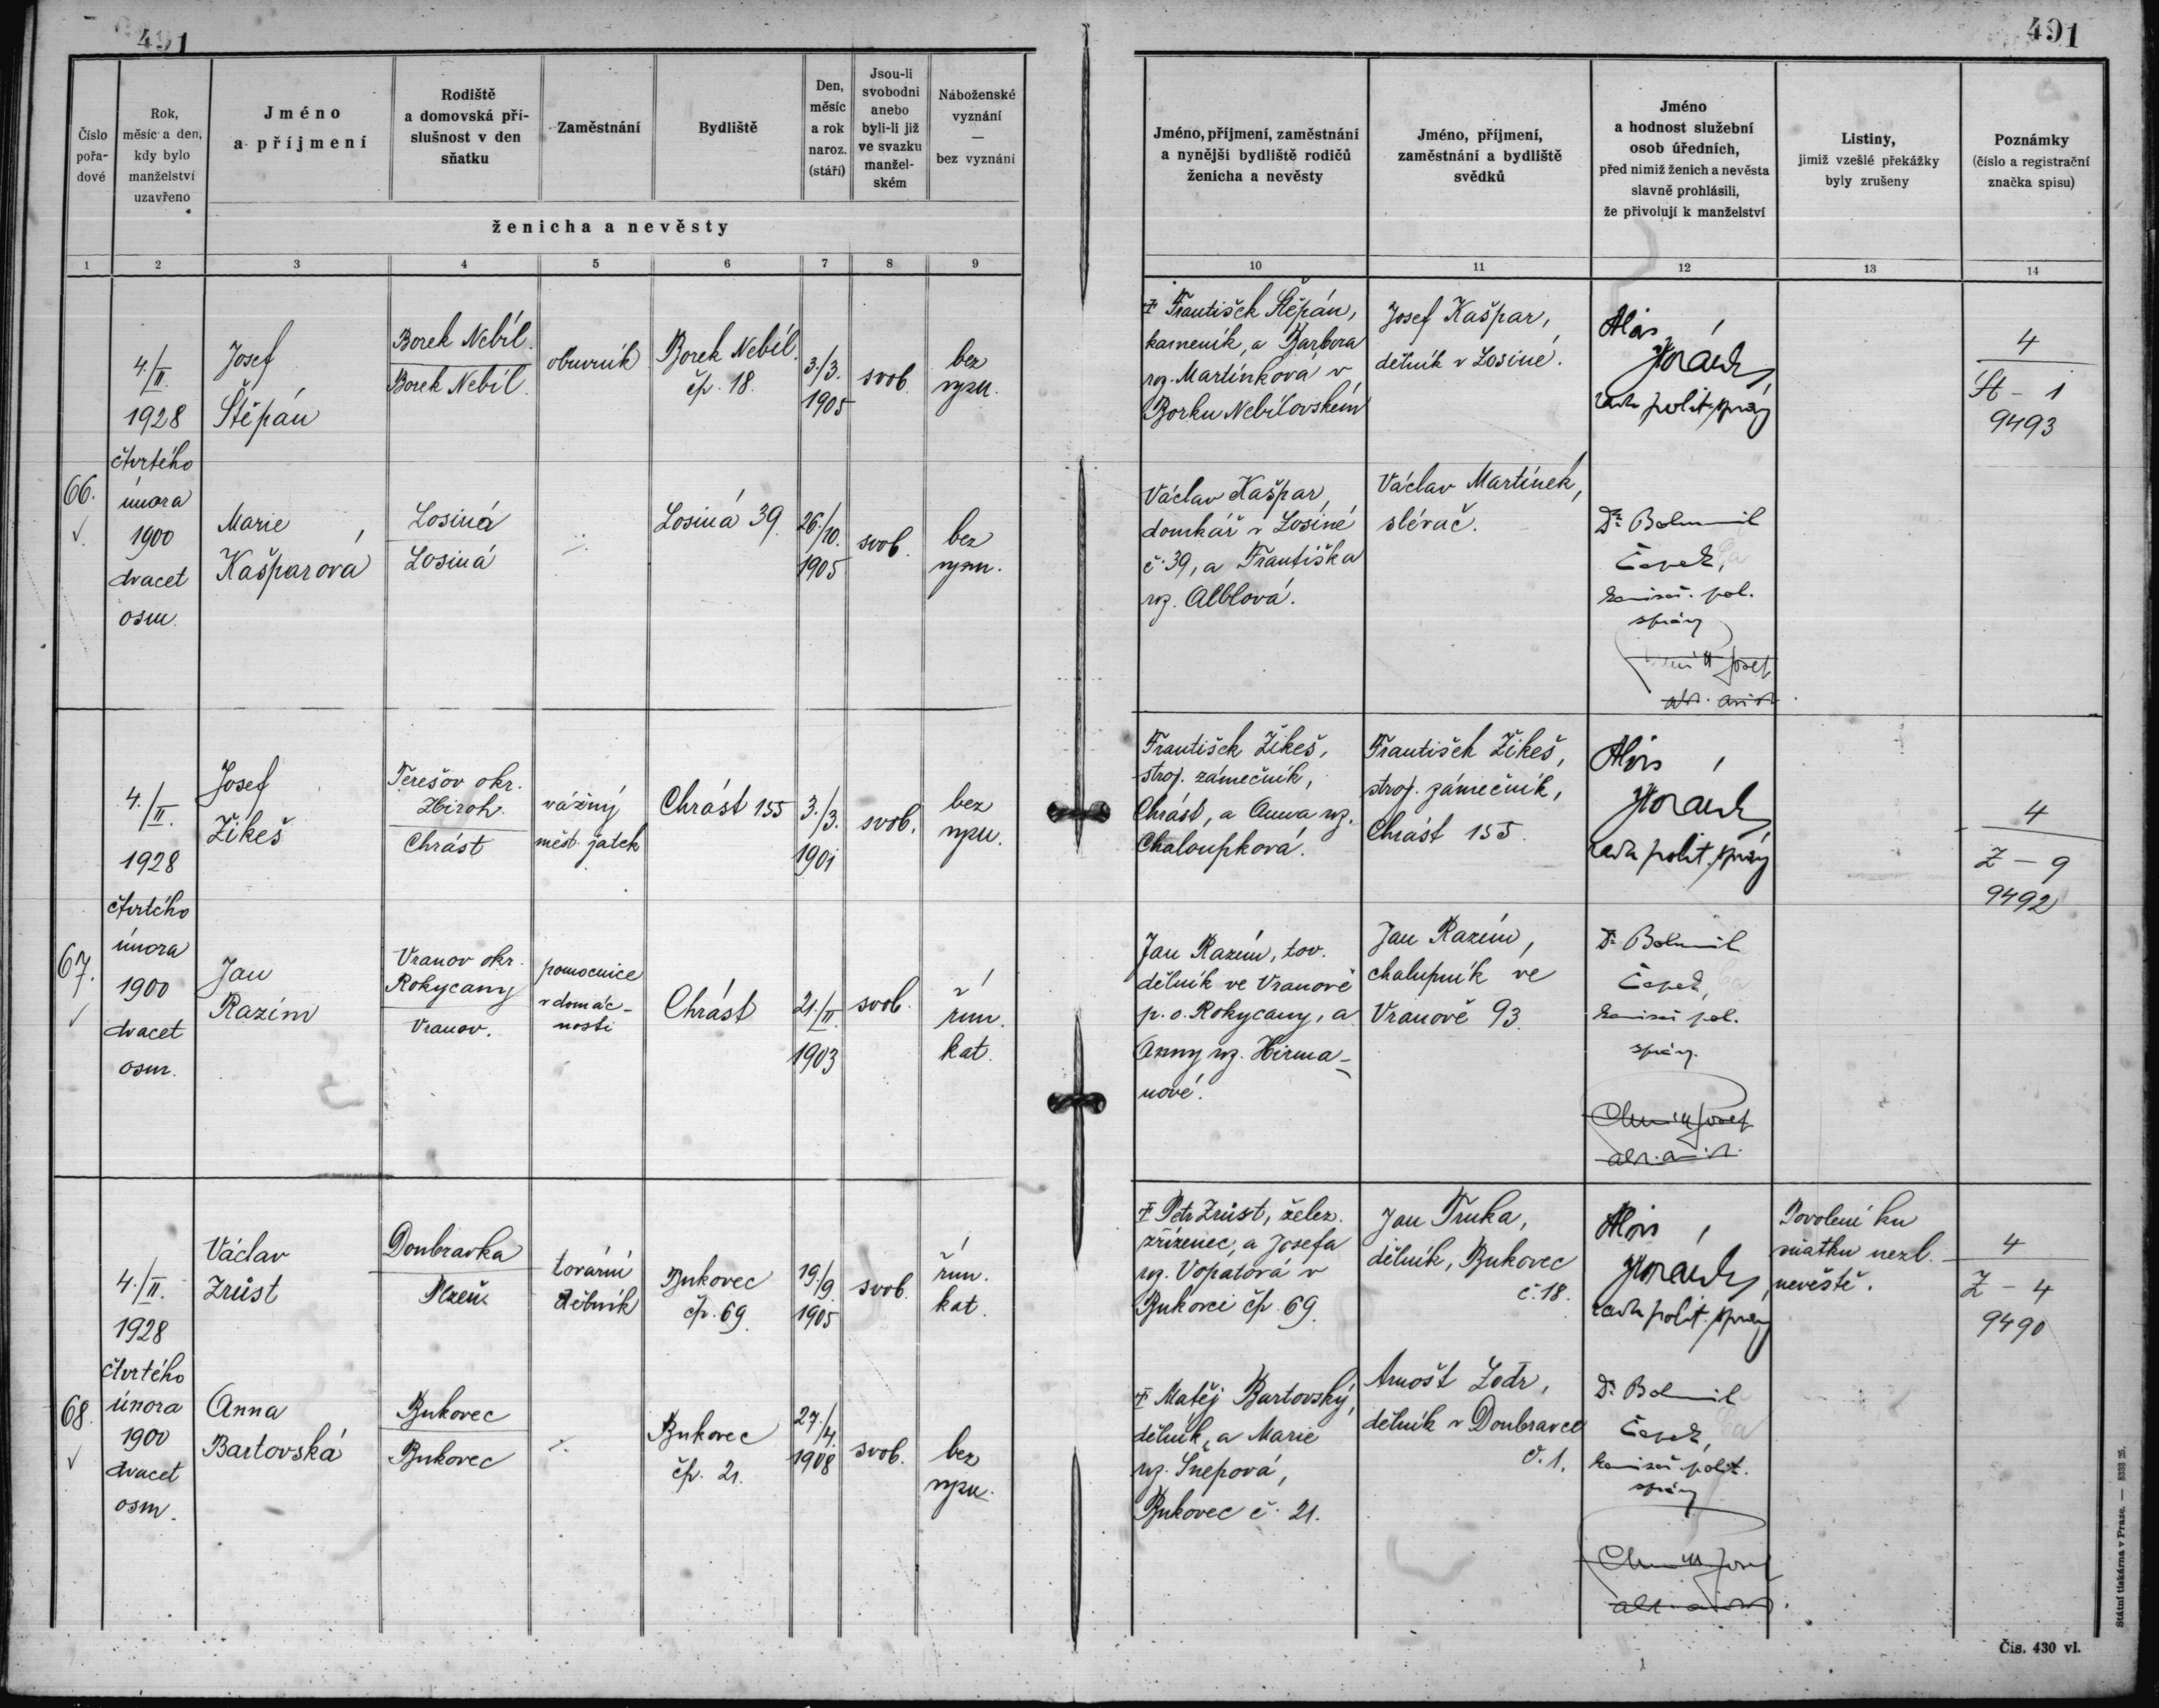 491
491
Číslo pořa-dové
Rok, měsíc a den, kdy bylo manželství uzavřeno
Jméno a příjmení
Rodiště a domovská pří-slušnost v den sňatku
Zaměstnání
Bydliště
Den, měsíc a rok naroz. (stáří)
Jsou-li svobodni anebo byli-li již ve svazku manžel-ském
Náboženské vyznání — bez vyznání
ženicha a nevěsty
Jméno, příjmení, zaměstnání a nynější bydliště rodičů ženicha a nevěsty
Jméno, příjmení, zaměstnání a bydliště svědků
Jméno a hodnost služební osob úředních, před nimiž ženich a nevěsta slavně prohlásili, že přivolují k manželství
Listiny, jimiž vzešlé překážky byly zrušeny
Poznámky (číslo a registrační značka spisu)
1 2 3 4 5 6 7 8 9 10 11 12 13 14
66.
4./II.
1928
čtvrtého
února
1900
dvacet
osm.
Josef
Štěpán
Borek Nebíl.
Borek Nebíl.
obuvník
Borek Nebíl.
čp. 18.
3./3.
1905
svob.
bez
vyzn.
‡ František Štěpán,
kameník, a Barbora
roz. Martínková v
Borku Nebílovském
Josef Kašpar,
dělník v Losiné.
Alois
Horák,
rada polit. správy
4
Št - 1
9493
Marie
Kašparová
Losiná
Losiná
Losiná 39.
26./10.
1905
svob.
bez
vyzn.
Václav Kašpar,
domkář v Losiné
č. 39, a Františka
roz. Alblová.
Václav Martínek,
slévač.
Dr. Bohumil
Čapek,
komisař. pol.
správy
Josef
67.
4./II.
1928
čtvrtého
února
1900
dvacet
osm.
Josef
Žikeš
Terešov okr.
Zbiroh.
Chrást
vážný
měst. jatek
Chrást 155
3./3.
1901
svob.
bez
vyzn.
František Žikeš,
stroj. zámečník,
Chrást, a Anna roz.
Chaloupková.
František Žikeš,
stroj. zámečník,
Chrást 155.
Alois
Horák,
rada polit. správy
4
Z - 9
9492
Jan
Razím
Vranov okr.
Rokycany
Vranov.
pomocnice
v domác-
nosti
Chrást
21./II.
1903
svob.
řím.
kat.
Jan Razím, tov.
dělník ve Vranově
p. o. Rokycany, a
Anny roz. Hirma-
nové.
Jan Razím,
chalupník ve
Vranově 93.
Dr. Bohumil
Čapek,
komisař pol.
správy.
Josef
68.
4./II.
1928
čtvrtého
února
1900
dvacet
osm.
Václav
Zrůst
Doubravka
Plzeň
tovární
dělník
Bukovec
čp. 69.
19./9.
1905
svob.
řím.
kat.
‡ Petr Zrůst, želez.
zřízenec, a Josefa
roz. Vopatová v
Bukovci čp. 69.
Jan Truka,
dělník, Bukovec
č. 18.
Alois
Horák,
rada polit. správy
Povolení ku
sňatku nezl.
nevěstě.
4
Z - 4
9490
Anna
Bartovská
Bukovec
Bukovec
Bukovec
čp. 21.
27./4.
1908
svob.
bez
vyzn.
‡ Matěj Bartovský,
dělník, a Marie
roz. Šnepová,
Bukovec č. 21.
Arnošt Lodr,
dělník v Doubravce
č. 1.
Dr. Bohumil
Čapek,
komisař polit.
správy
Josef
Státní tiskárna v Praze. — 8333 25.
Čís. 430 vl.